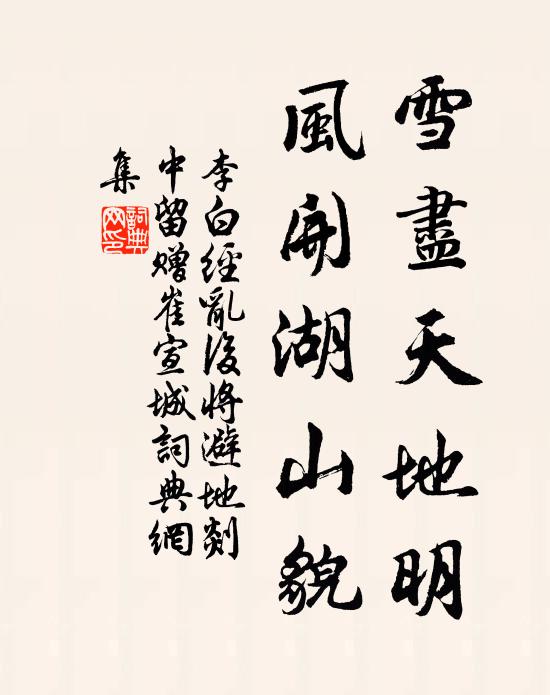 雪盡天地明
風開湖山貌
李白經亂後將避地剡
中留贈崔宣城詞典網
集
詞典
网印